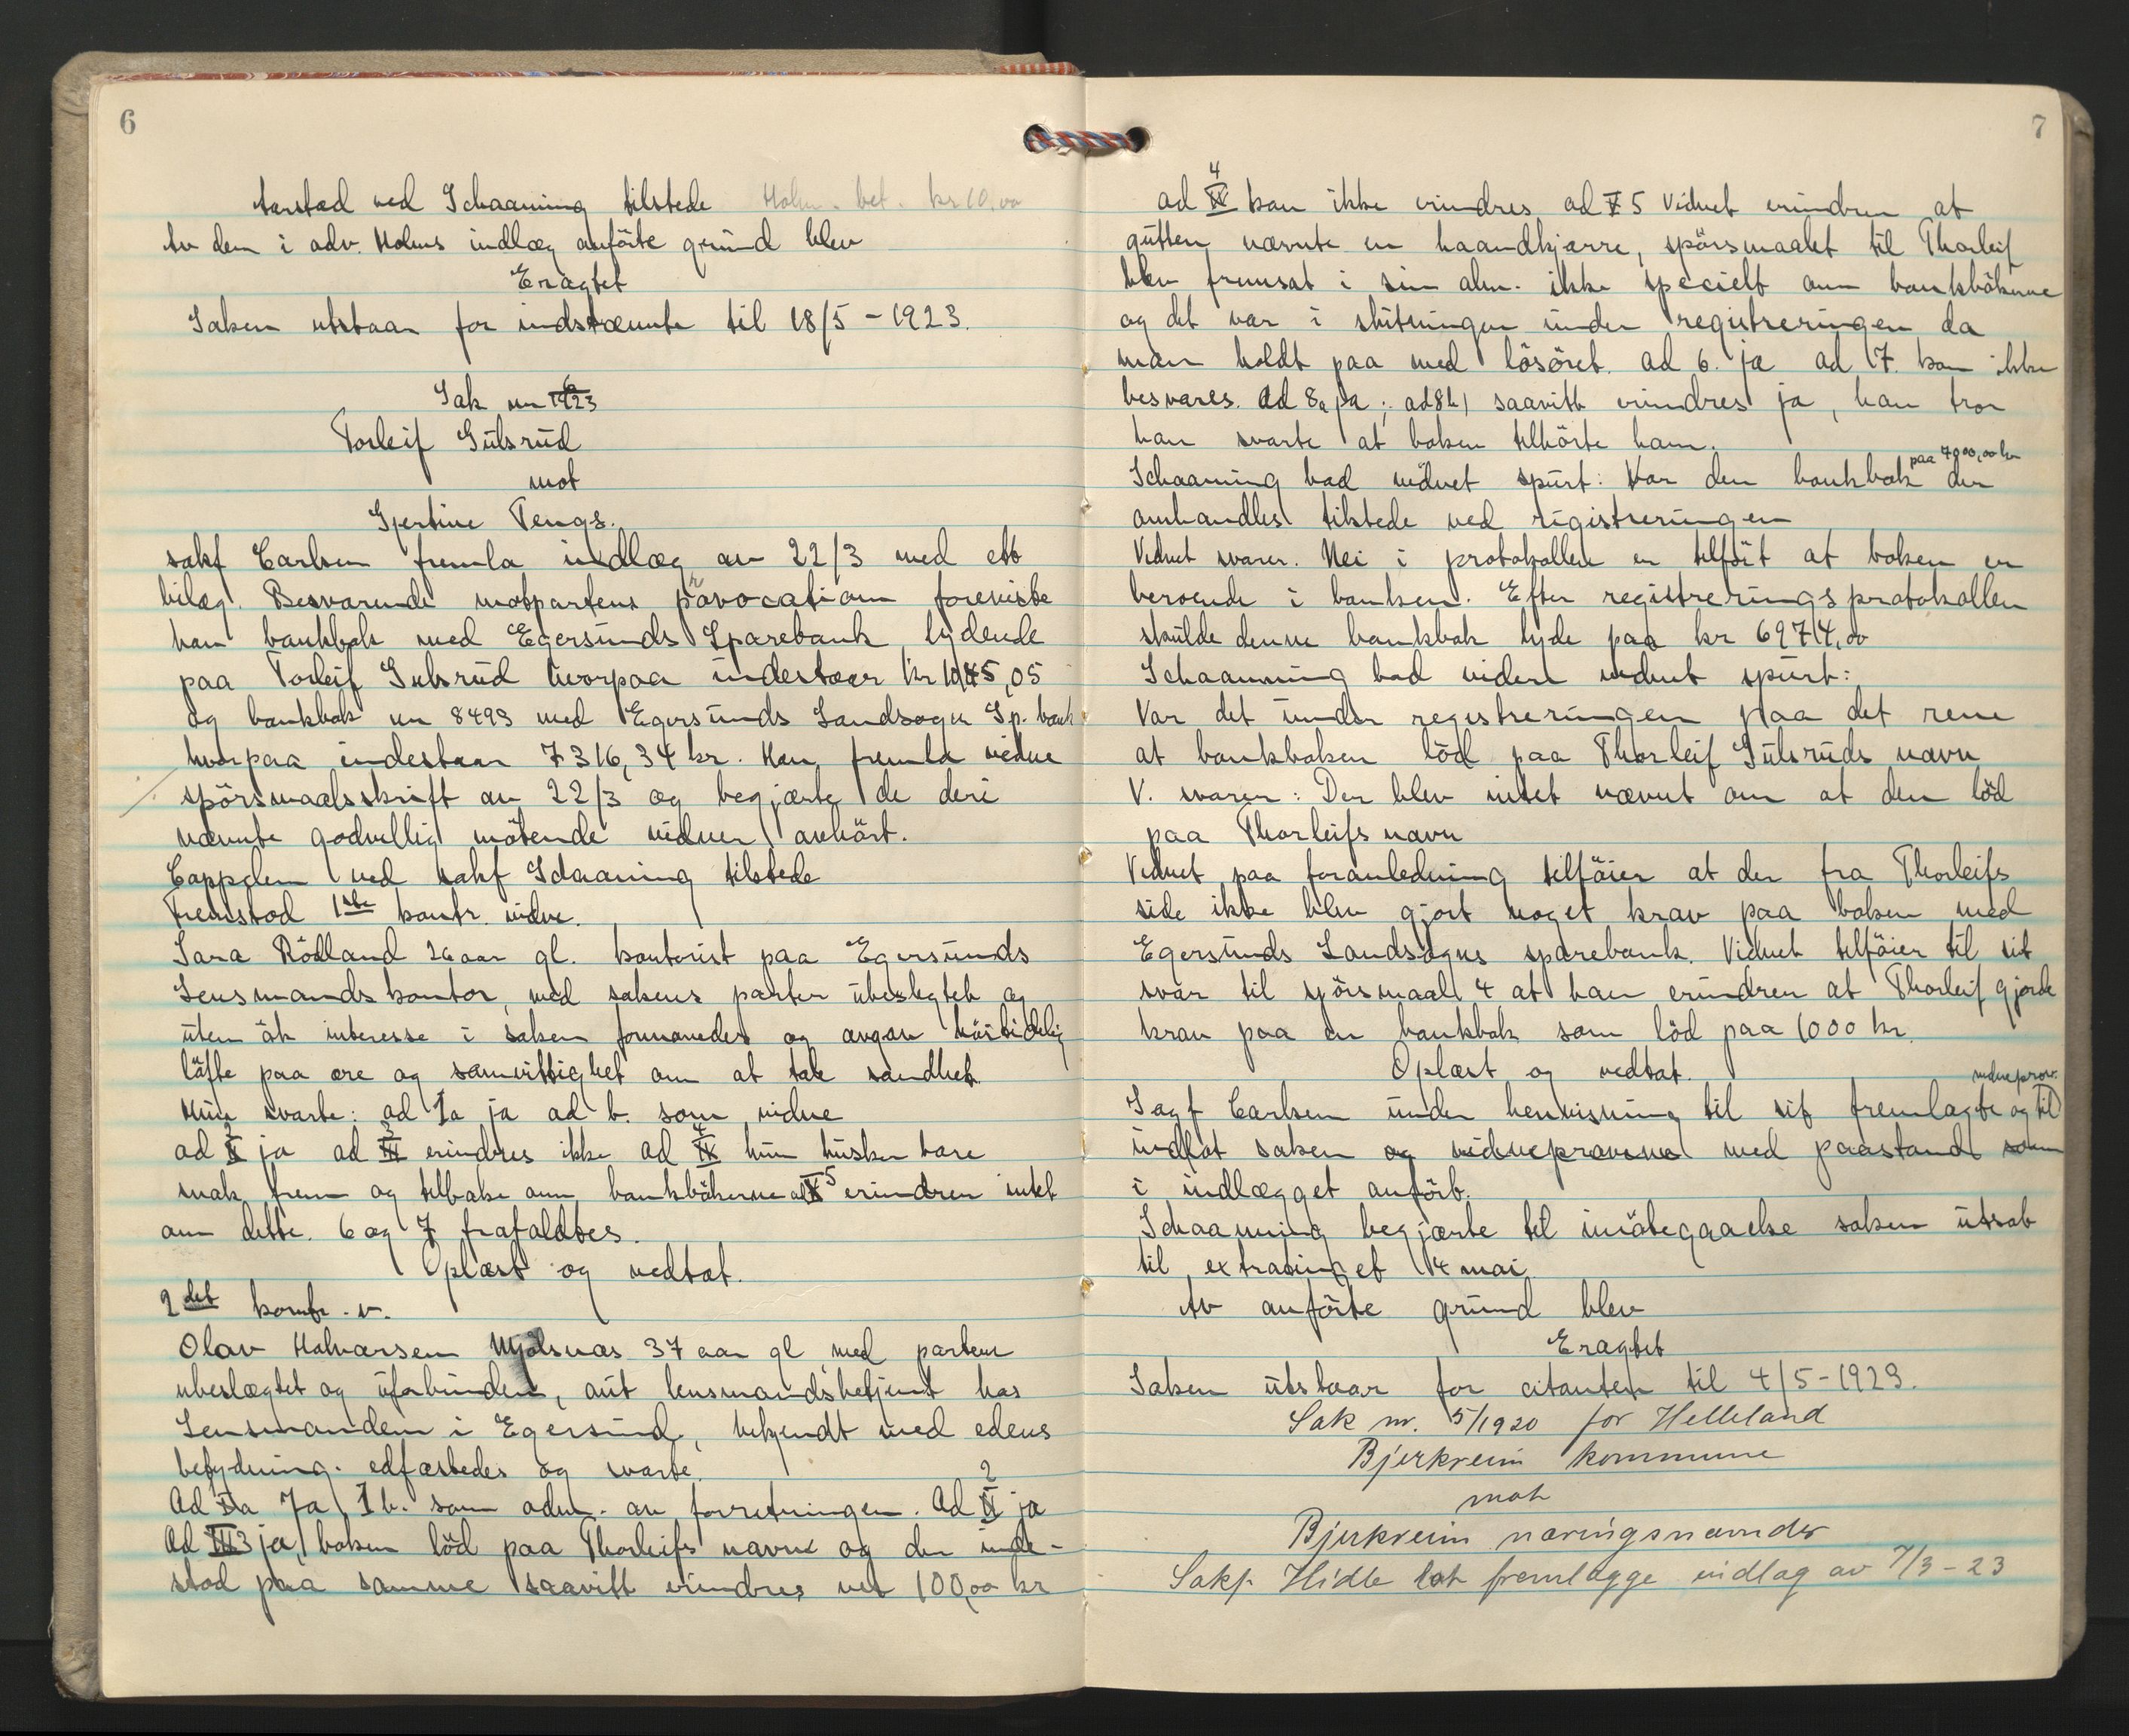 6
tarstad ved Schaaning tilstede Holm. bet. kr 10,00
Av den i adv. Holms indlæg anförte grund blev
Eragtet
Saken utstaar for indstævnte til 18/5-1923.
Sak nr 6/1923
Torleif Gulsrud
mot
Gjertine Tengs.
sakf Carlsen fremla indlæg av 22/3 med ett
bilag. Besvarende motpartens provocation foreviste
han bankbok med Egersunds Sparebank lydende
paa Torleif Gulsrud hvorpaa indestaar kr 1045,05
og bankbok nr 8493 med Egersunds Landsogns Sp. bank
hvorpaa indestaar 7316,34 kr. Han fremla vidne
spörsmaalsskrift av 22/3 og begjærte de deri
nævnte godvillig mötende vidner avhört.
Cappelen ved sakf Schaaning tilstede
Fremstod 1ste kontr. vidne.
Sara Rödland 26 aar gl. kontorist paa Egersunds
Lensmandskontor, med sakens parter ubeslegtet og
uten ök interesse i saken formanedes og avgav höitidelig
löfte paa ære og samvittighet om at tale sandhet.
Hun svarte: ad 1a ja ad b. som vidne
ad 2 ja ad 3 erindres ikke ad 4 hun husker bare
snak frem og tilbake om bankbökerne ad 5 erindrer intet
om dette. 6 og 7 frafaldtes.
Oplæst og vedtat.
2det kontr. v.
Olav Halvorsen Mjölsnes 37 aar gl med partene
ubeslægtet og uforbunden, aut lensmandsbetjent hos
Lensmanden i Egersund, bekjendt med edens
betydning. edfæstedes og svarte.
Ad 1a Ja 1 b. som adm. av forretningen. Ad 2 ja
Ad 3 ja, boken löd paa Thorleifs navn og der inde-
stod paa samme saavitt erindres vel 1000,00 kr
7
ad 4 kan ikke erindres ad 5 Vidnet erindrer at
gutten nævnte en haandkjærre, spörsmaalet til Thorleif
blev fremsat i sin alm. ikke specielt om bankbökerne
og det var i slutningen under registreringen da
man holdt paa med lösöret. ad 6. ja ad 7. kan ikke
besvares. ad 8a ja; ad 8b) saavitt erindres ja, han tror
han svarte at boken tilhörte ham.
Schaaning bad vidnet spurt: Var den bankbok paa 7000,00 kr der
omhandles tilstede ved registreringen
Vidnet svarer. Nei i protokollen er tilföit at boken er
beroende i banken. Efter registreringsprotokollen
skulde denne bankbok lyde paa kr 6974,00
Schaanning bad videre vidnet spurt:
Var det under registreringen paa det rene
at bankboken löd paa Thorleif Gulsruds navn
V. svarer: Der blev intet nævnt om at den löd
paa Thorleifs navn
Vidnet paa foranledning tilföier at der fra Thorleifs
side ikke blev gjort noget krav paa boken med
Egersunds Landsogns sparebank. Vidnet tilföier til sit
svar til spörsmaal 4 at han erindrer at Thorleif gjorde
krav paa en bankbok som löd paa 1000 kr.
Oplæst og vedtat.
Sagf Carlsen under henvisning til sit fremlagte og til vidneprov.
indlot saken og vidneprovene med paastand som
i indlægget anfört.
Schaanning begjærte til imötegaaelse saken utsat
til extratinget 4 mai
Av anförte grund blev
Eragtet
Saken utstaar for citanten til 4/5-1923.
Sak nr. 5/1920 for Helleland
Bjerkreim kommune
mot
Bjerkreim næringsnævnder
Sakf. Hidle lot fremlægge indlæg av 7/3-23